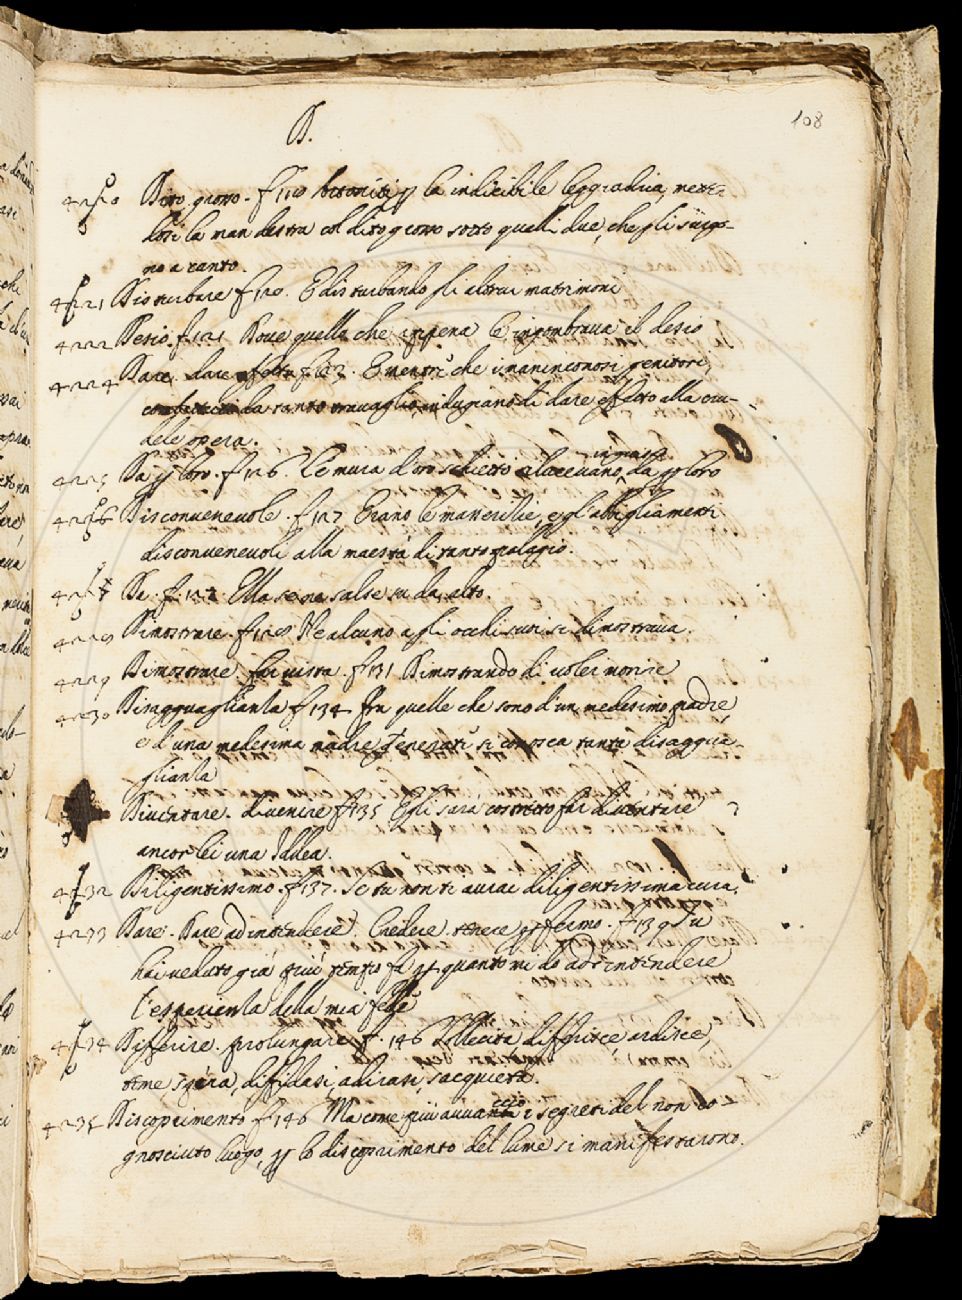 D.
108
Dito grosso. f 120 la indicibile leggiadria, mette-
dosi la man destra col dito grosso sotto quelli due, che gli sùrgo-
no a canto.
4221 Disturbare f 120. E disturbando gli altrui matrimoni
4222 Desio. f 121 Dove quella che appena le ingombrava il desio
4224 Dare. dare effetto f 123. E mentre che i manincònosi genitori,
da tanto travaglio, indugiano di dare effetto alla cru-
dele opera.
4225 Da per loro. f 126 Le mura d'oro schietto rilucevano in guisa, da per loro
4226 Disconvenevole. f 127 Erano le masserizie, e gl'abbigliamenti
disconvenevoli alla maestà di tanto palagio.
Da. f 127 Ella se ne salse su da alto.
4228 Dimostrare. f 128 Ne alcuno a gli occhi suoi si dimostrava.
4229 Dimostrare. far vista. f 131 Dimostrando di voler morire
4230 Disagguaglianza f 134 In quelle che sono d'un medesimo padre,
e d'una medesima madre generate si conosca tanta disaggua-
glianza
Diventare. divenire f 135 Egli sarà costretto far diventare
ancor lei una Iddea.
4232 Diligentissimo. f 137. Se tu non ti avrai diligentissima cura,
4233 Dare. Dare ad intendere. Credere tenere per fermo. f 139 Tu
hai veduto già più tempo fa per quanto mi do ad intendere
l'esperienza della mia fede
4234 Differire. prolungare f. 146 Sollecita differisce ardisce,
teme spera, difidasi, adirasi, s'acquieta.
4235 Discoprimento f 146 Ma come più avvanti i segreti del non co-
gnosciuto luogo, per lo discoprimento del lume si manifestarono.